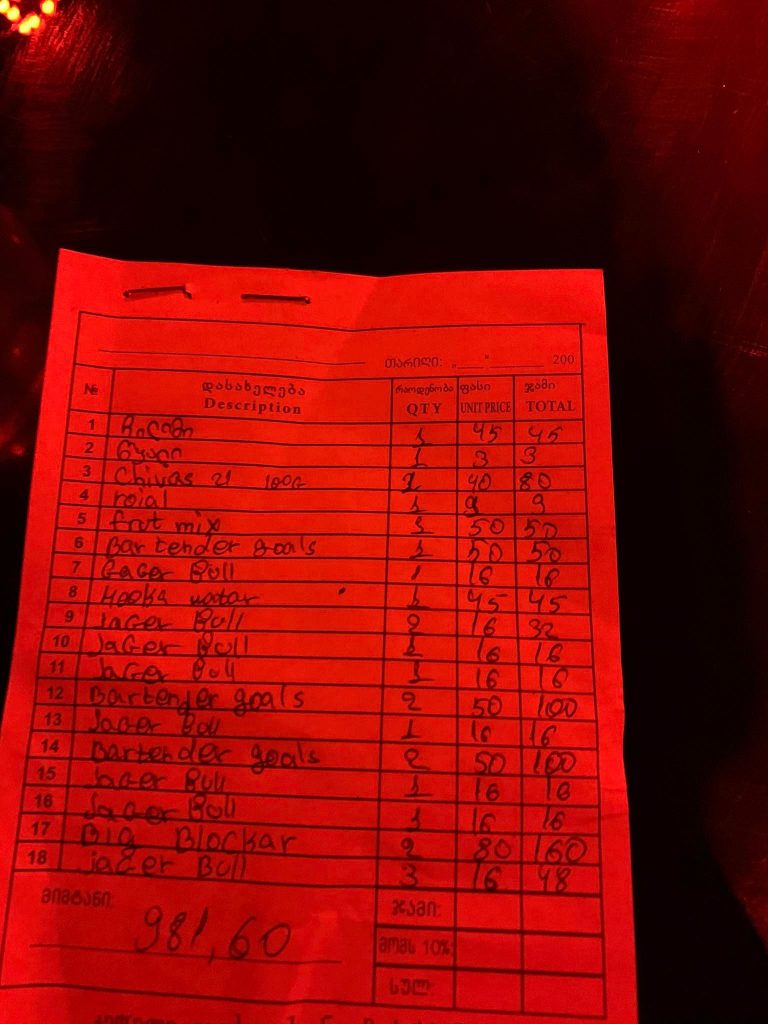 თარიღი: „___“ ________ 200
№ დასახელება Description რაოდენობა QTY ფასი UNIT PRICE ჯამი TOTAL
1 ჩილიმი 1 45 45
2 წყალი 1 3 3
3 Chivas 21 100G 2 40 80
4 roial 1 9 9
5 frut mix 1 50 50
6 Bartender goals 1 50 50
7 Gager Bull 1 16 16
8 Hooka 1 45 45
9 Jager Bull 2 16 32
10 Jager Bull 1 16 16
11 Jager Bull 1 16 16
12 Bartender goals 2 50 100
13 Jager Bull 1 16 16
14 Bartender goals 2 50 100
15 Jager Bull 1 16 16
16 Jager Bull 1 16 16
17 Big Blockar 2 80 160
18 jager Bull 3 16 48
მიმტანი: ჯამი:
981,60 მომს 10%:
სულ: